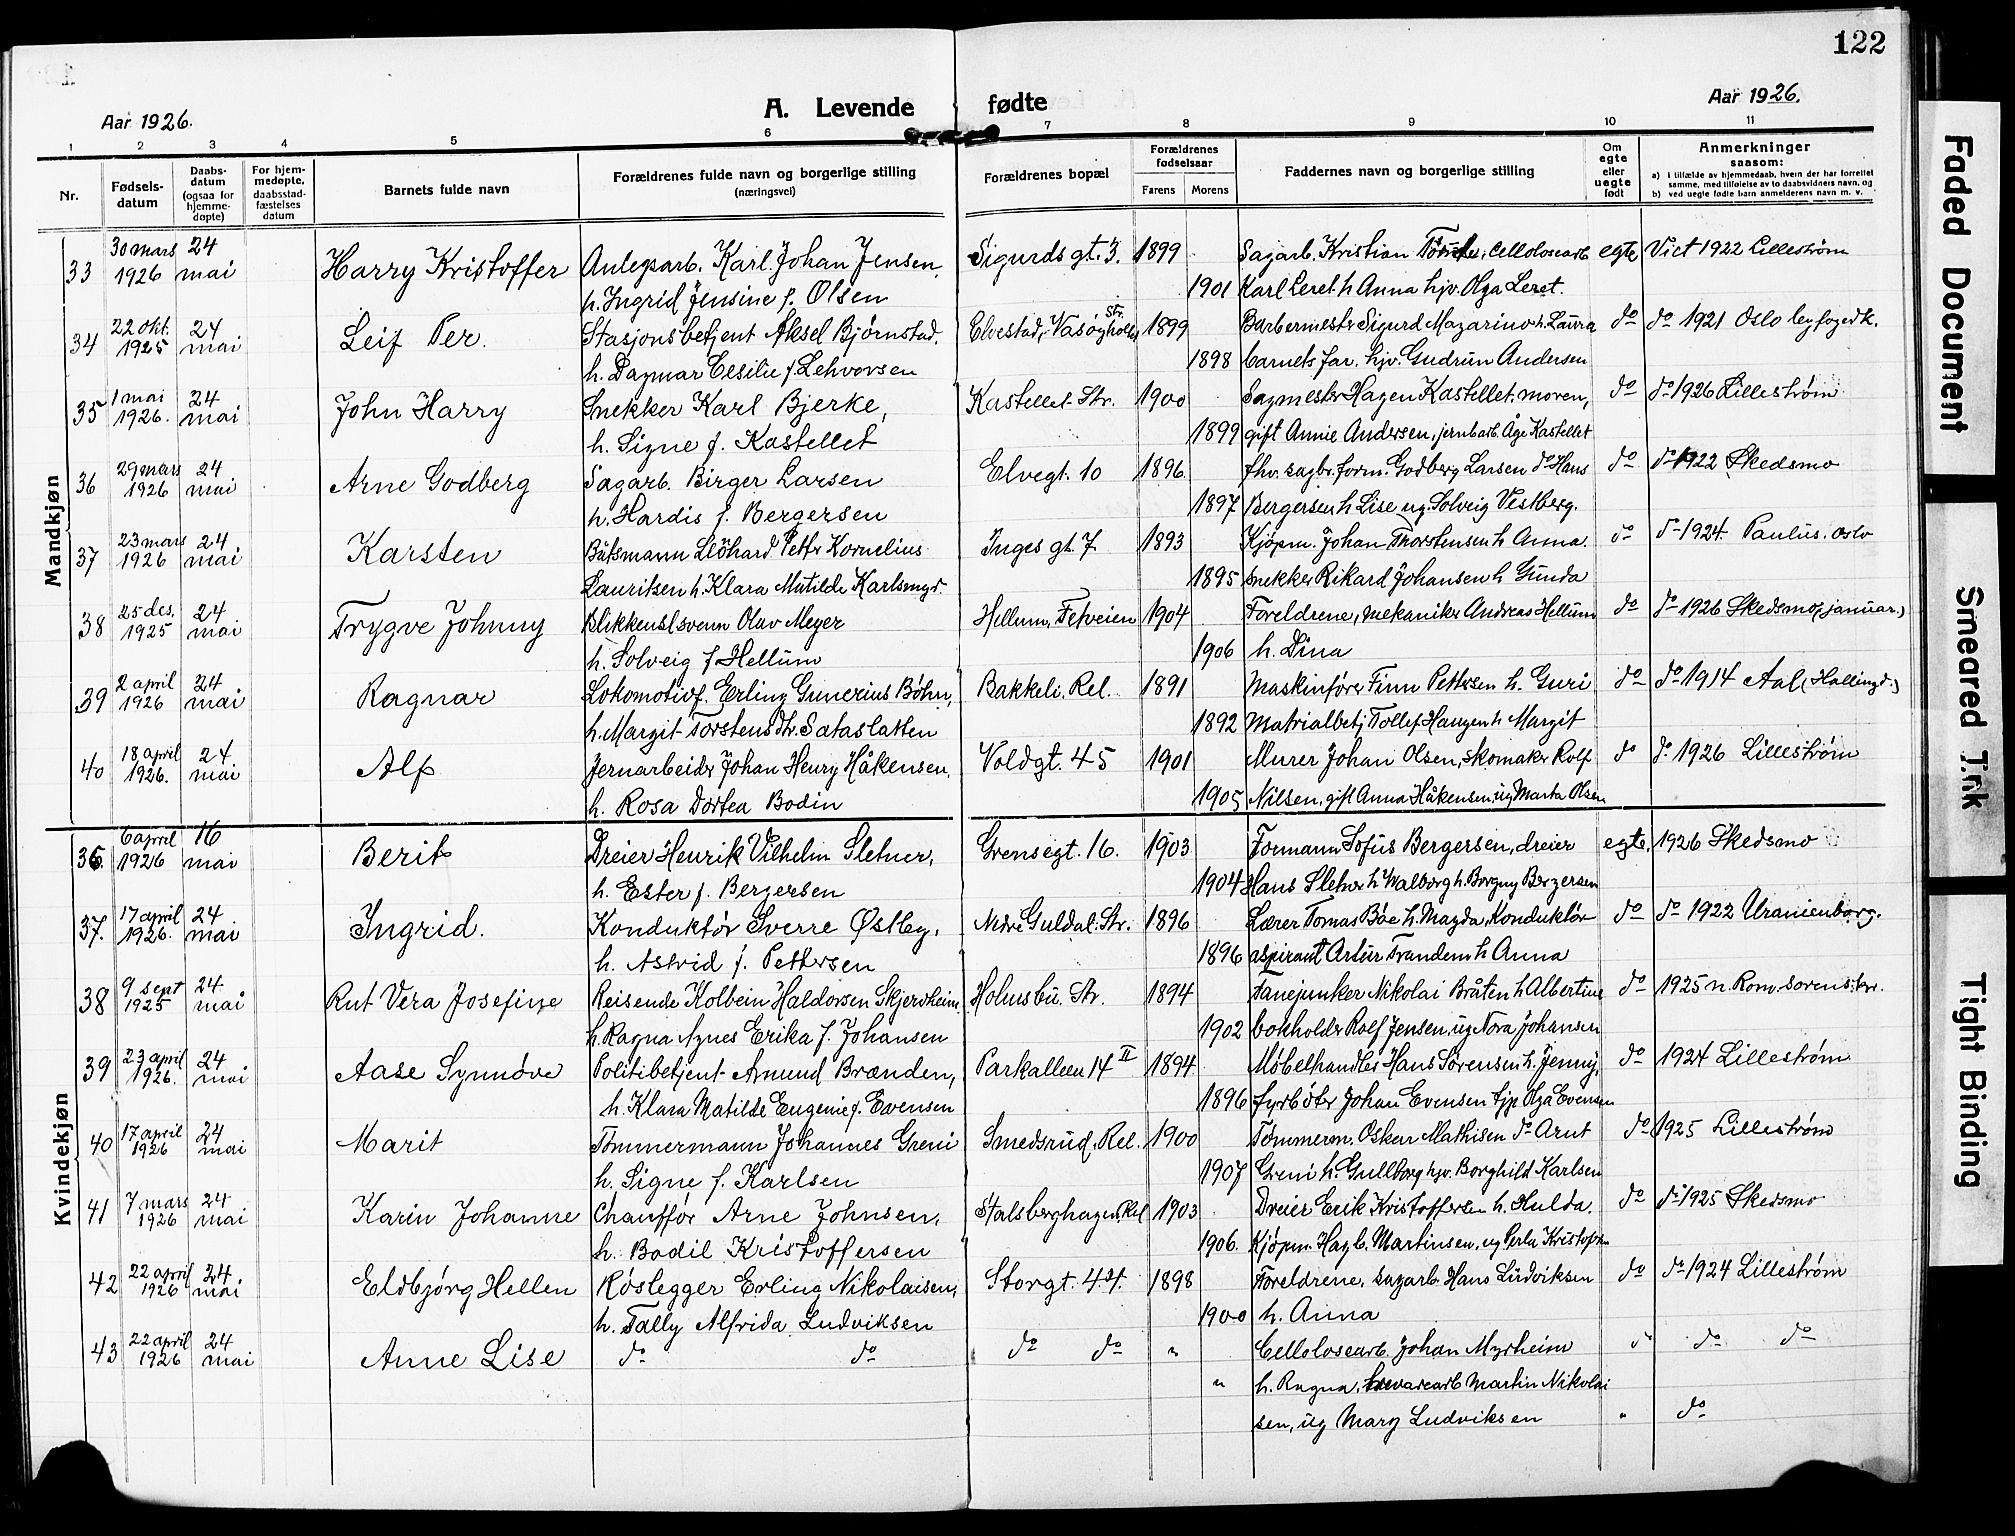 122
Aar 1926.
A. Levende fødte
Aar 1926.
1 2 3 4 5 6 7 8 9 10 11
Nr.
Fødsels-
datum
Daabs-
datum
(ogsaa for
hjemme-
døpte)
For hjem-
medøpte,
daabsstad-
fæstelses
datum
Barnets fulde navn
Forældrenes fulde navn og borgerlige stilling
(næringsvei)
Forældrenes bopæl
Forældrenes
fødselsaar
Farens Morens
Faddernes navn og borgerlige stilling
Om
egte
eller
uegte
født
Anmerkninger
saasom:
a) i tilfælde av hjemmedaab, hvem der har forrettet
samme, med tilføielse av to daabsvidners navn, og
b) ved uegte fødte barn anmelderens navn m. v.
Mandkjøn
30 mars 24
33 1926 mai Harry Kristoffer Anlegsarb. Karl Johan Jensen, Sigurds gt. 3. 1899 Sagarb. Kristian cellolosearb egte Vict 1922 Lillestrøm
h. Ingrid Jensine f. Olsen 1901 Karl Leret h Anna hjv. Olga Leret.
22 okt. 24
34 1925 mai Leif Per. Stasjonsbetjent Aksel Bjørnstad. Elvestad, Str. 1899 Barbermestr Sigurd Mazarino h. Laura do do 1921 Oslo
h. Dagmar Cesilie f. Lehvorsen 1898 barnets far. hjv. Gudrun Andersen
1 mai 24
35 1926. mai John Harry Snekker Karl Bjerke, Kastellet Str. 1900 Sagmestr Hagen Kastellet, moren, do do 1926 Lillestrøm
h. Signe f. Kastellet 1899 gift Annie Andersen, jernbarb. Åge Kastellet
29 mars 24
36 1926 mai Arne Godberg Sagarb. Birger Larsen Elvegt. 10 1896 fhv. sagbr. form. Godberg Larsen do Hans do do 1922 Skedsmo
h. Hardis f. Bergersen 1897 Bergersen h Lise ug. Solveig Vestberg.
23 mars 24
37 1926 mai Karsten Båtsmann Petter Kornelius Inges gt. 7 1893 Kjøpm. Johan Thorstensen h Anna. do do 1924 Paulus. Oslo
Lauritsen h. Klara Matilde Karlsmyr. 1895 snekker Rikard Johansen h Gunda
25 des. 24
38 1925 mai Trygve Johnny Blikkensl svenn Olav Meyer Hellum, Fetveien 1904 Foreldrene, mekaniker Andreas Hellum do do 1926 Skedsmo (januar.)
h. Solveig f Hellum 1906 h. Dina
2 april 24
39 1926 mai Ragnar Lokomotivf. Erling Gunerius Bøhn, Bakkeli, Rel. 1891 Maskinfører Finn Pettersen h. Guri do do 1914 Aal (Hallingd.)
h. Margit Torstensdtr. Sataslatten 1892 Matrialbetj Tollef Haugen h Margit
18 april 24
40 1926. mai Alf Jernarbeider Johan Henry Håkensen, Voldgt. 45 1901 Murer Johan Olsen, skomaker Rolf do do 1926 Lillestrøm
h. Rosa Dortea Bodin 1905 Nilsen, gift Anna Håkensen, ug Marta Olsen
Kvindekjøn
6 april 16
36. 1926 mai Berit Dreier Henrik Vilhelm Sletner, Grensegt. 16. 1903 Formann Sofus Bergersen, dreier egte. 1926 Skedsmo
h. Ester f. Bergersen 1904 Hans Sletner h Valborg h. Borgny Bergersen
17 april 24
37. 1926. mai Ingrid. Konduktør Sverre Østby, Nedre Guldal. Str. 1896 Lærer Tomas Bøe h. Magda, Konduktør- do do 1922 Uranienborg.
h. Astrid f. Pettersen 1896 aspirant Artur Trandem h Anna
9 sept 24
38 1925 mai Rut Vera Josefine Reisende Kolbein Haldorsen Skjervheim Holmsbu. Str. 1894 Fanejunker Nikolai Bråten h Albertine do 1925 n. Rom. sorenskr.
h. Ragna Agnes Erika f. Johansen 1902 bokholder Rolf Jensen, ug Nora Johansen
23 april 24
39 1926. mai Aase Synnøve Politibetjent Amund Brænden, Parkalleen 14 II 1894 Møbelhandler Hans Sørensen h. Jenny, do 1924 Lillestrøm
h. Klara Matilde Eugenie f. Evensen 1896 fyrbøter Johan Evensen tjp Olga Evensen
17 april 24
40 1926 mai Marit Tømmermann Johannes Greni Smedsrud, Rel. 1900 Tømmerm. Oskar Mathisen do Arnt do 1925 Lillestrøm
h. Signe f. Karlsen 1907 Greni h. Gullborg hjv. Borghild Karlsen
7 mars 24
41 1926 mai Karin Johanne Chauffør Arne Johnsen, Stalsberghagen, Rel 1903 Dreier Erik Kristoffersen h. Hulda. do do 1925 Skedsmo
h. Bodil Kristoffersen 1906. Kjøpm. Hagb. Martinsen, ug Perla Kristofersen
22 april 24
42 1926 mai Eldbjørg Hellen Rørlegger Erling Nikolaisen, Storgt. 44. 1898 Foreldrene, sagarb. Hans Ludviksen do do 1924 Lillestrøm
h. Tally Alfrida Ludviksen 1900 h. Anna
22 april 24
43 1926 mai Anne Lise do do do do " Cellolosearb. Johan Myrheim do do do
" h. Ragna, Martin Nikolai
sen, ug Mary Ludviksen " do
Faded Document
Smeared Ink
Tight Binding